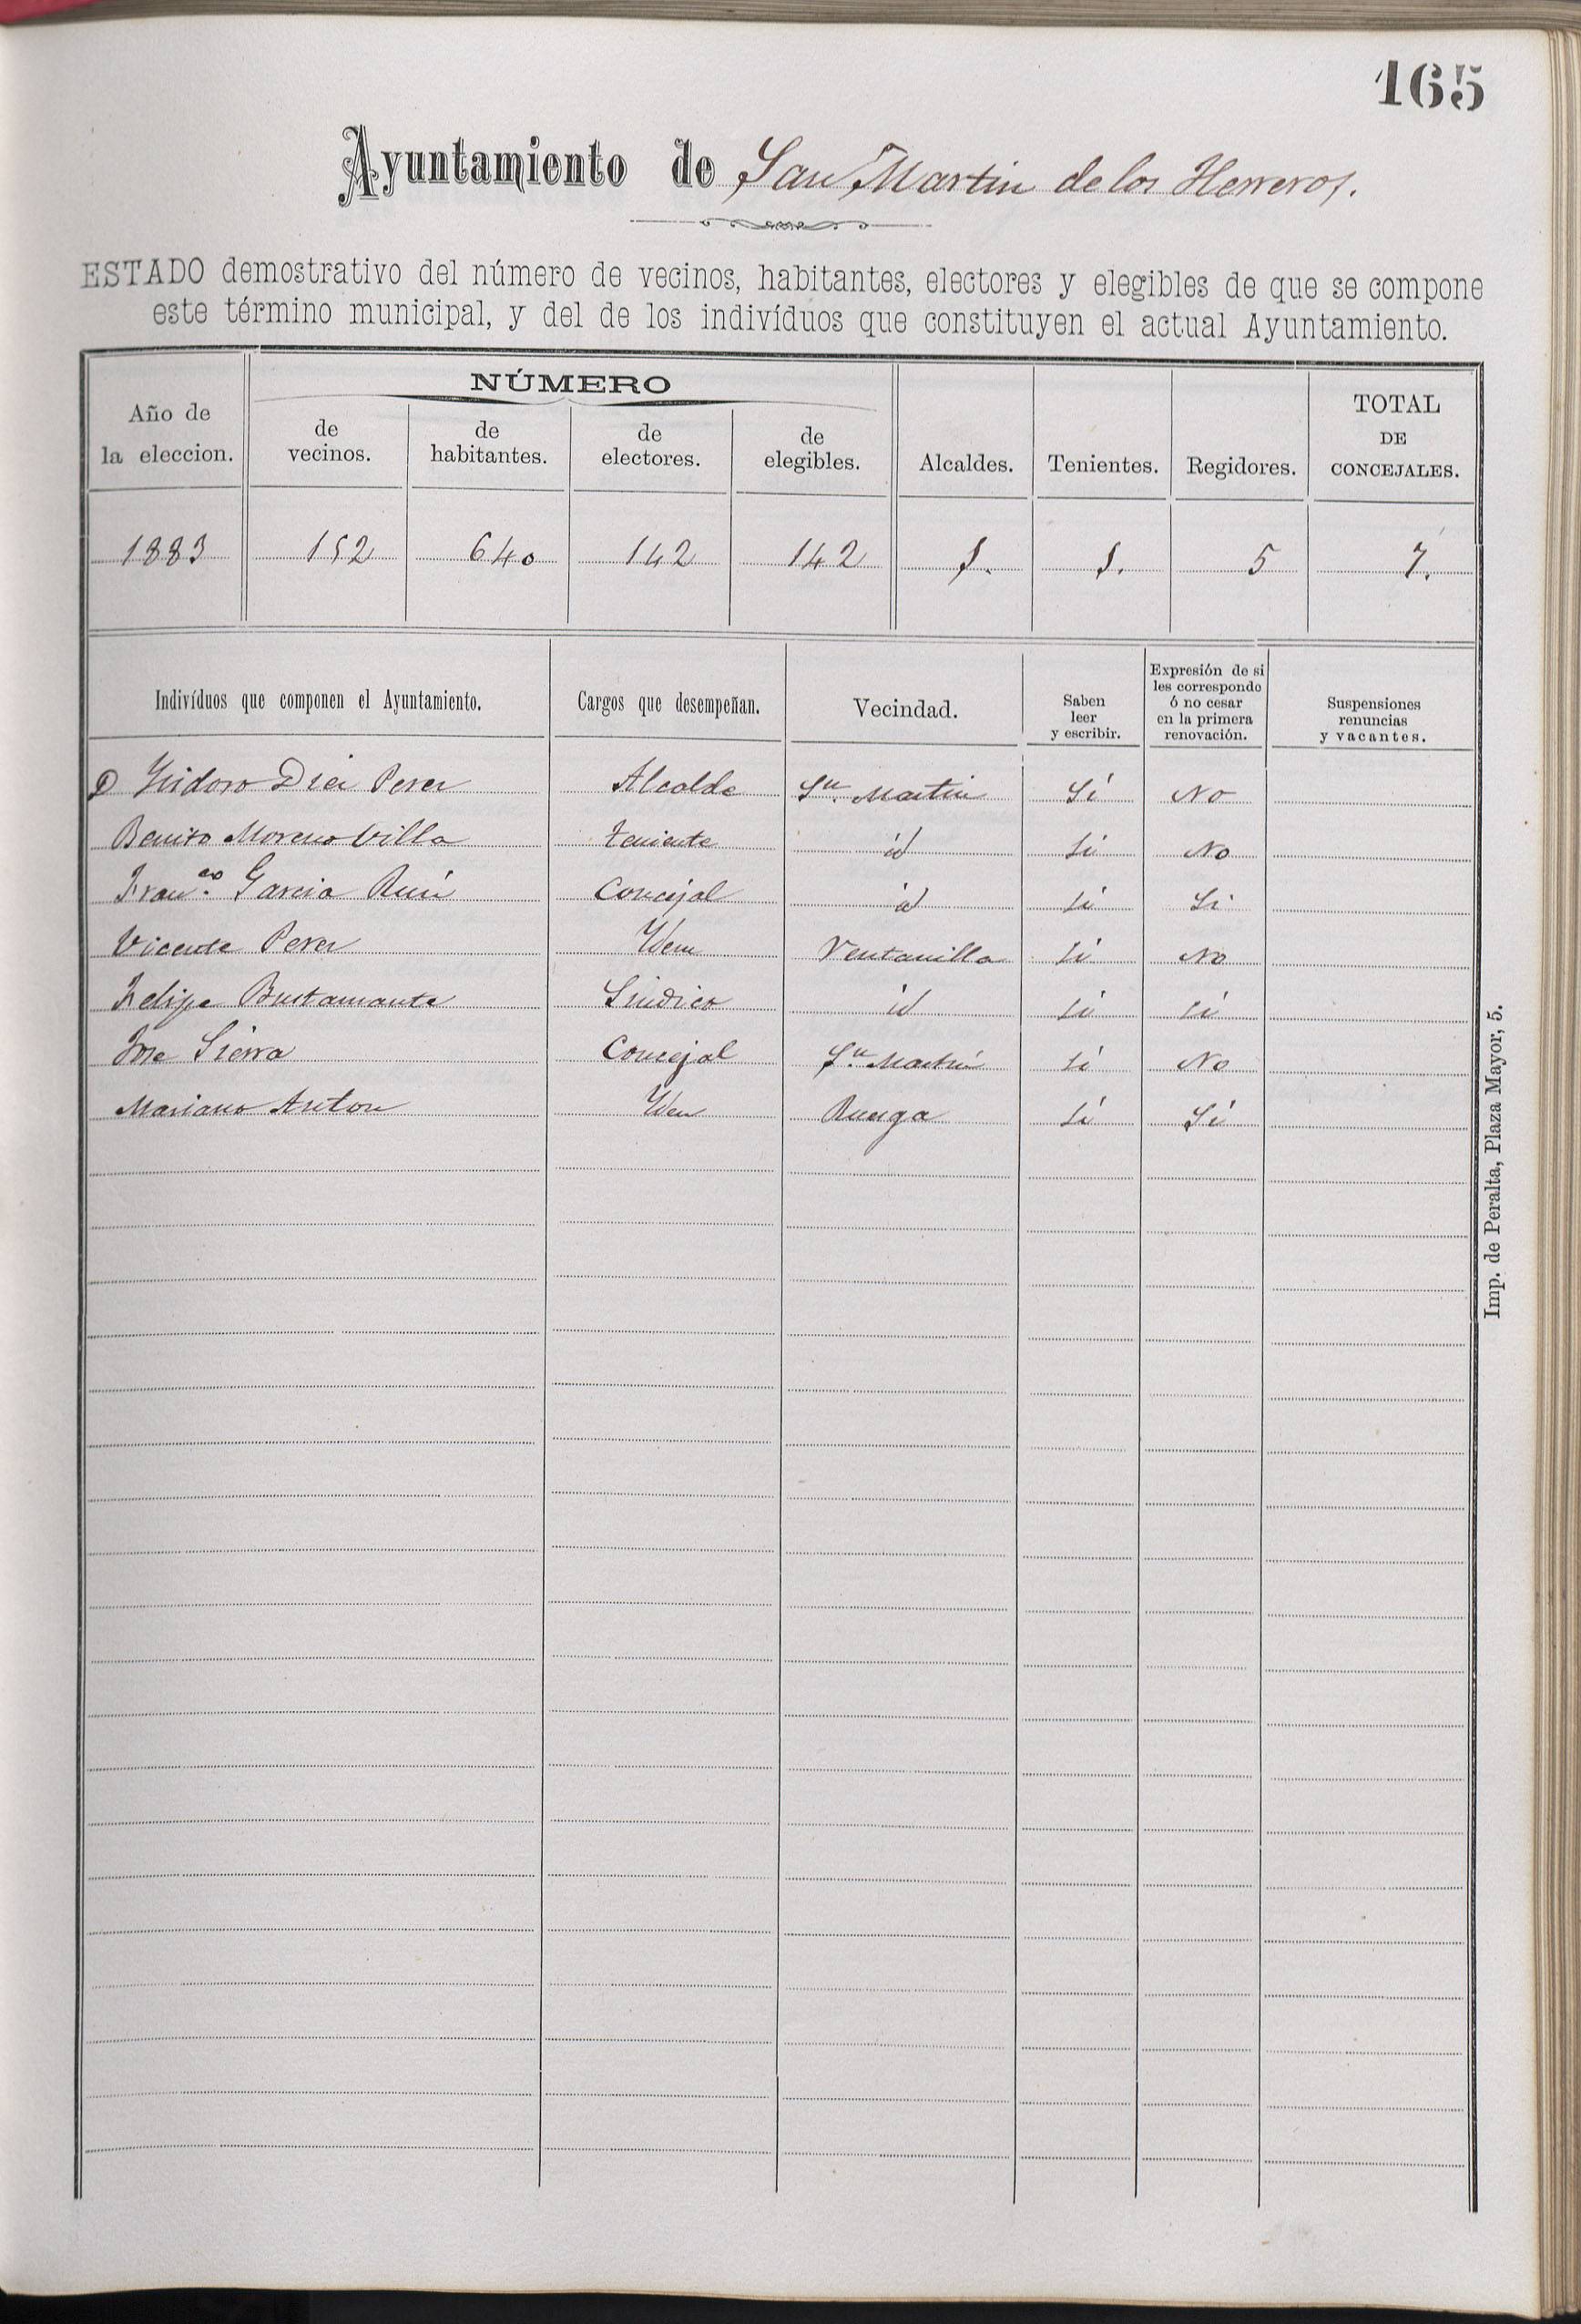 165
Ayuntamiento de San Martin de los Herreros.
ESTADO demostrativo del número de vecinos, habitantes, electores y elegibles de que se compone
este término municipal, y del de los indivíduos que constituyen el actual Ayuntamiento.
Año de la eleccion. NÚMERO de vecinos. de habitantes. de electores. de elegibles. Alcaldes. Tenientes. Regidores. TOTAL DE CONCEJALES.
1883 152 640 142 142 1. 1. 5 7.
Indivíduos que componen el Ayuntamiento. Cargos que desempeñan. Vecindad. Saben leer y escribir. Expresión de si les corresponde ó no cesar en la primera renovación. Suspensiones renuncias y vacantes.
D Isidoro Diez Perez Alcalde Sn. Martin Sí No
Benito Moreno Villa teniente id Si No
Franco. Garcia Ruiz Concejal id Si Si
Vicente Perez Idem Ventanilla Si No
Felipe Bustamante Sindico id Si Si
Jose Sierra Concejal Sn. Martin Si No
Mariano Anton Idem Ruesga Si Sí
Imp. de Peralta, Plaza Mayor, 5.